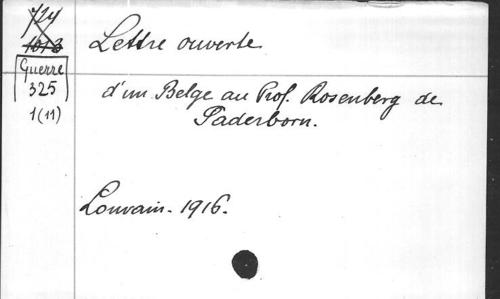 724
1013
Guerre
325
1(11)
Lettre ouverte
d'un Belge au Prof. Rosenberg de
Paderborn.
Louvain. 1916.